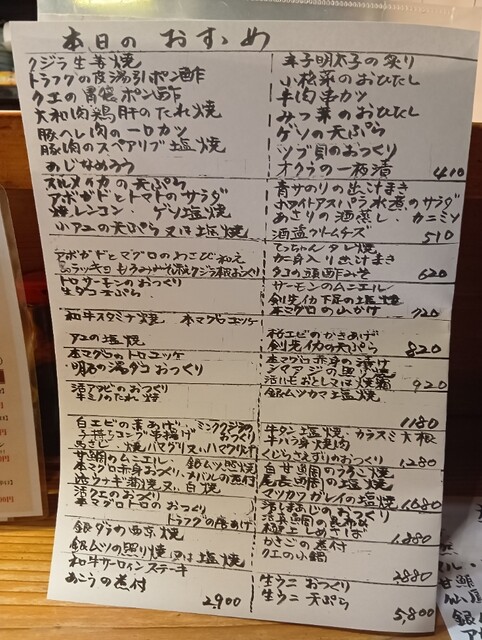 本日の おすすめ
クジラ生姜焼
トラフグの皮湯引ポン酢
クエの胃袋ポン酢
大和肉鶏肝のたれ焼
豚ヘレ肉の一口カツ
豚肉のスペアリブ塩焼
あじなめろう
辛子明太子の炙り
小松菜のおひたし
牛肉串カツ
みつ葉のおひたし
ゲソの天ぷら
ツブ貝のおつくり
オクラの一柄漬 410
スルメイカの天ぷら
アボガドとトマトのサラダ
焼レンコン ゲソ塩焼
小アユの天ぷら又は塩焼
青サのりの出汁まき
ホワイトアスパラ水煮のサラダ
あさりの酒蒸し カニミソ
酒盗クリームチーズ 510
アボガドとマグロのわさび和え
てっちゃんタレ焼
カニ身入り出汁まき
タコの頭酢みそ 620
トロサーモンのおつくり
生タコ天ぷら
サーモンのムニエル
剣先イカ下足の塩焼
本マグロの山かけ 720
和牛スタミナ焼 本マグロユッケ
アユの塩焼
桜エビのかきあげ
剣先イカの天ぷら 820
本マグロのトロユッケ
明石の湯ダコおつくり
本マグロ赤身の漬け
シマアジの
920
活アワビのおつくり
牛ミノのたれ焼
銀ムツカマ塩焼
1180
白エビの素あげ ミンククジラのおつくり
手持ちコング串揚げ
馬さし
甘鯛のムニエル 銀ムツ照焼
本マグロ赤身おつくり メバルの煮付
活ウナギ蒲焼又は白焼
牛タン塩焼 カラスミ大根
牛ハラミ焼肉
くじらさえずりのおつくり 1280
活クエのおつくり
本マグロトロのおつくり
トラフグの唐あげ
白甘鯛のうろこ焼
尾長鯛の塩焼
マツカワガレイの塩焼 1680
銀ダラの西京焼
銀ムツの照り焼又は塩焼
活しまあじのおつくり
極上しめさば
かさごの煮付 1,880
和牛サーロインステーキ
あこうの煮付 2,900
クエの小鍋
2880
生ウニ おつくり
生ウニ 天ぷら
5,800